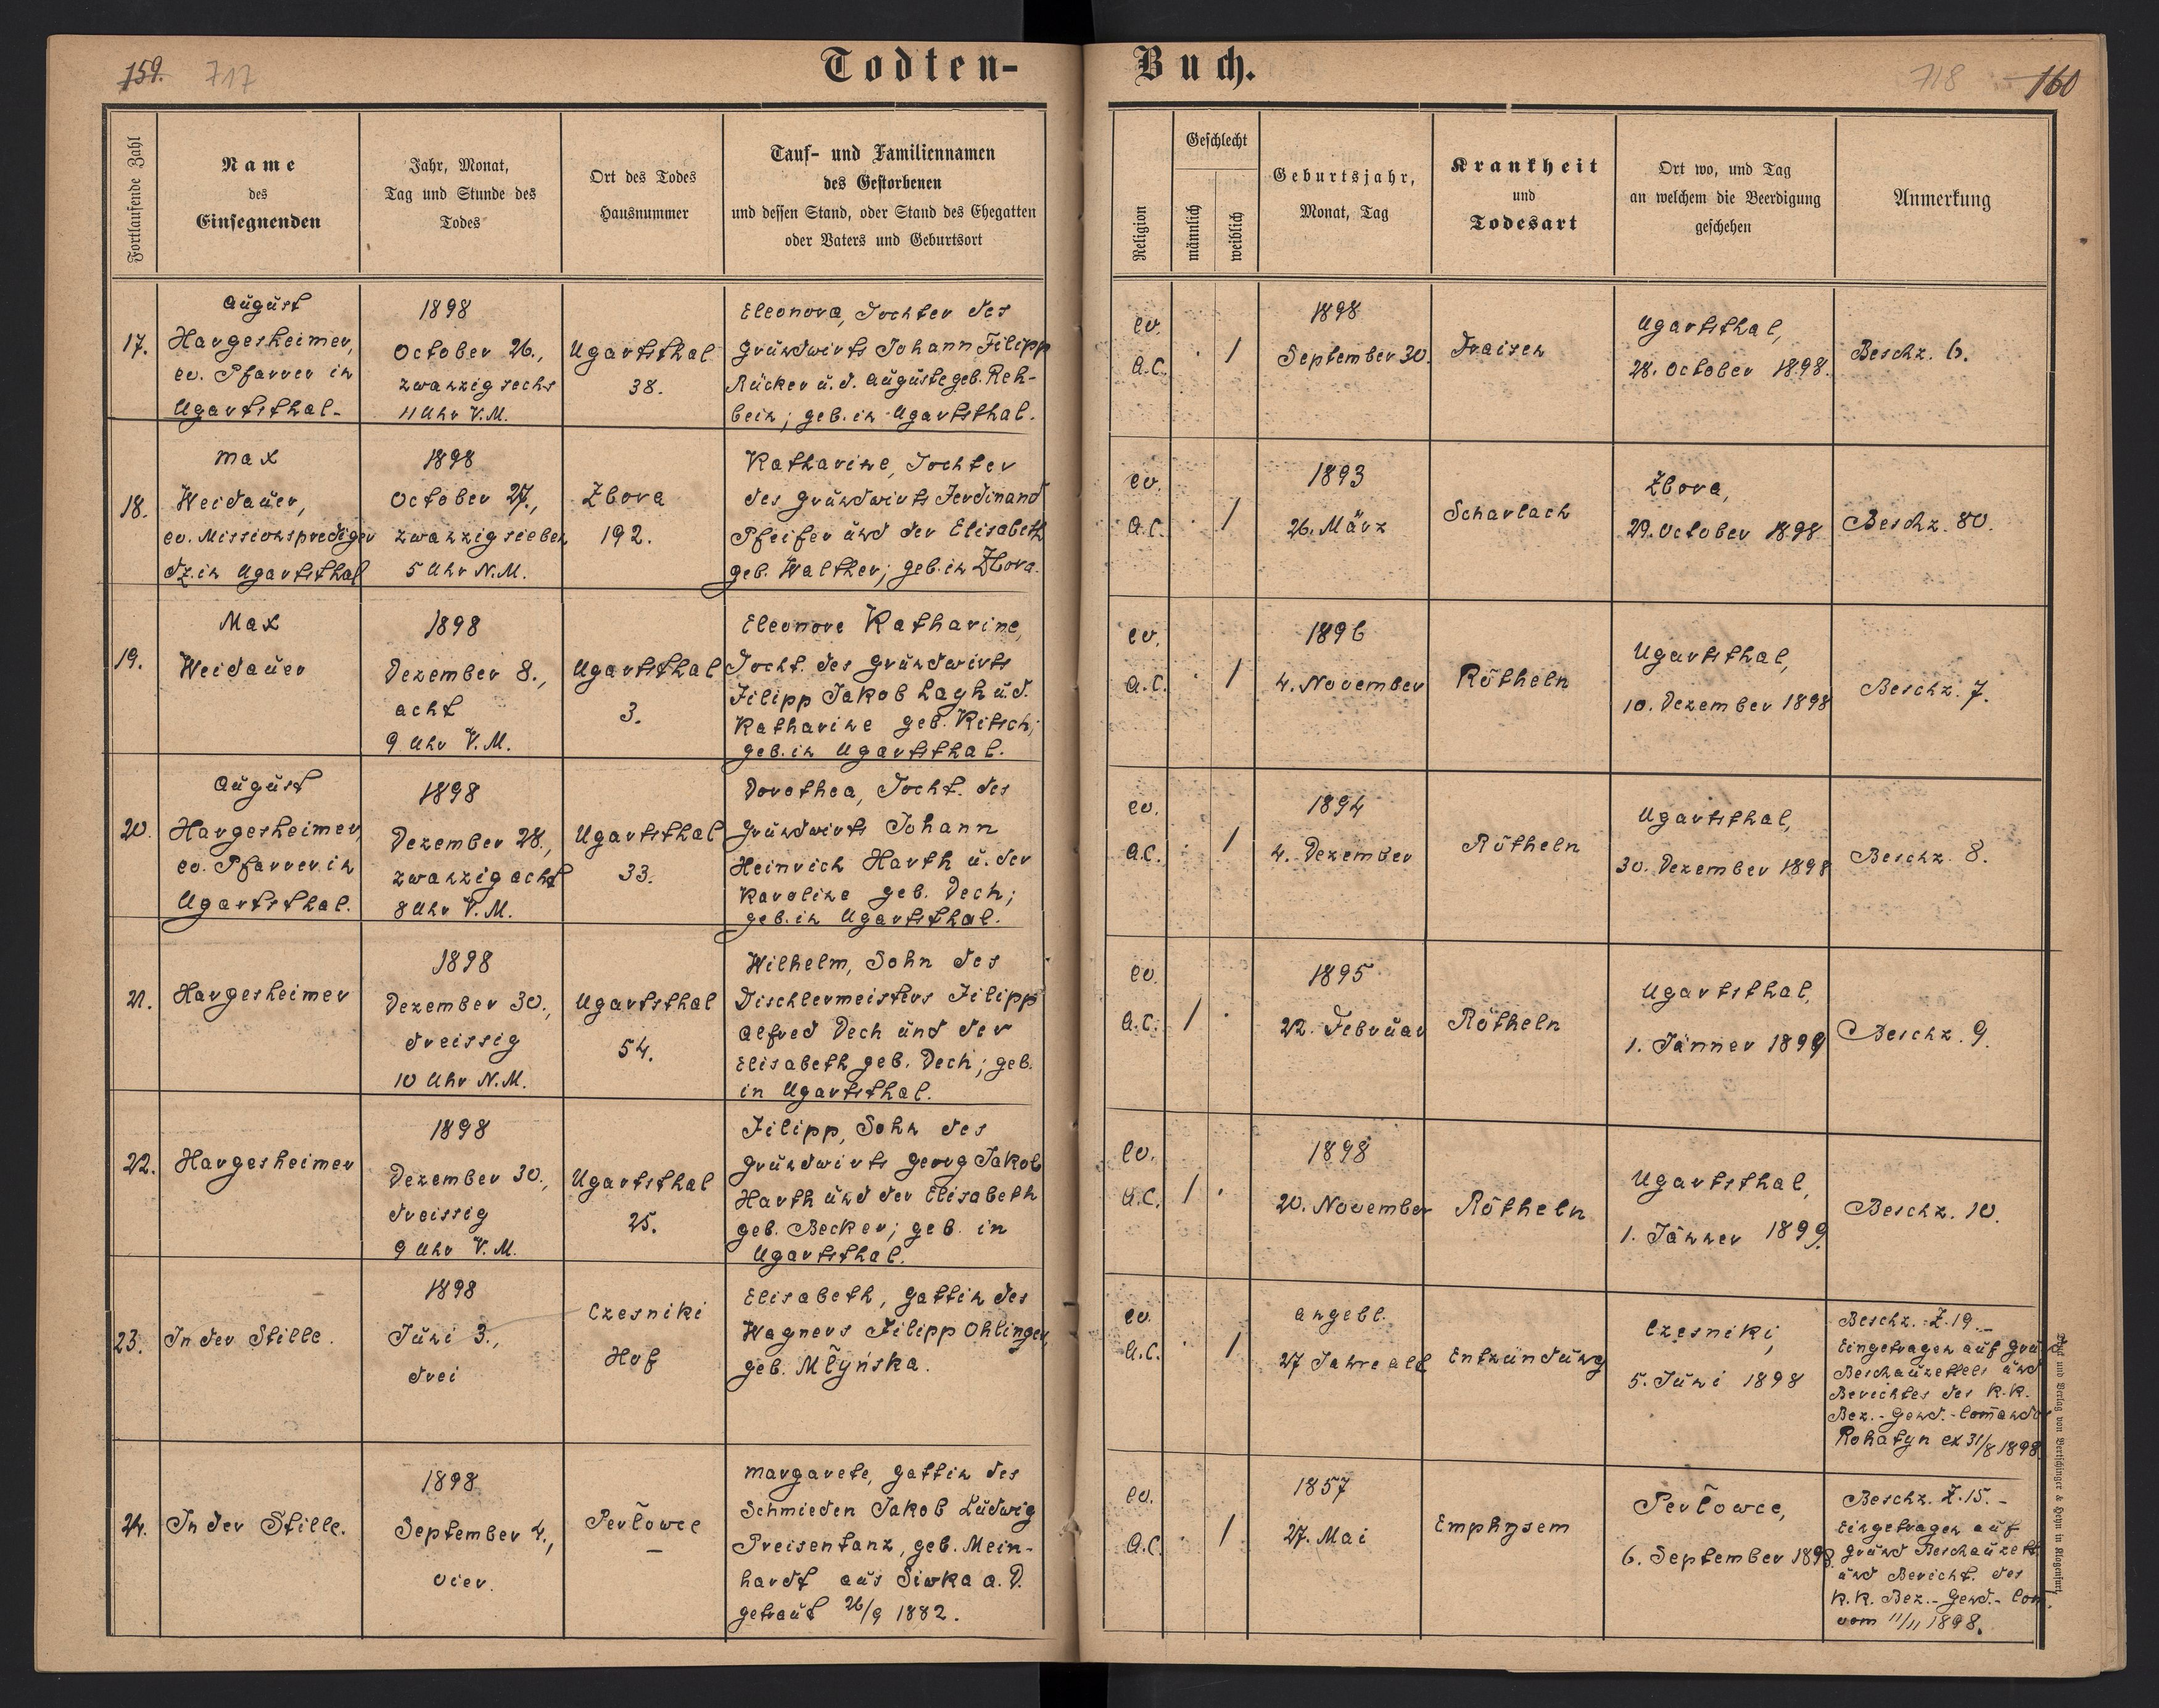 159. 717
Todten-Buch.
718 160
Fortlaufende Zahl
Name
des
Einsegnenden
Jahr, Monat,
Tag und Stunde des
Todes
Ort des Todes
Hausnummer
Tauf- und Familiennamen
des Gestorbenen
und dessen Stand, oder Stand des Ehegatten
oder Vaters und Geburtsort
Religion
Geschlecht
männlich
weiblich
Geburtsjahr,
Monat, Tag
Krankheit
und
Todesart
Ort wo, und Tag
an welchem die Beerdigung
geschehen
Anmerkung
17.
August
Hargesheimer,
ev. Pfarrer in
Ugartsthal.
1898
October 26.,
zwanzig sechs
11 Uhr V.M.
Ugartsthal
38.
Eleonora, Tochter des
Grundwirts Johann Filipp
Rücker u. d. Auguste geb. Reh-
bein; geb. in Ugartsthal.
ev.
A.C.
· /
1898
September 30.
Fraisen
Ugartsthal,
28. October 1898.
Beschz. 6.
18.
Max
Weidauer,
ev. Missionsprediger
dz. in Ugartsthal
1898
October 27.,
zwanzig sieben
5 Uhr N.M.
Zbora
192.
Katharine, Tochter
des Grundwirts Ferdinand
Pfeifer und der Elisabeth
geb. Walther; geb. in Zbora.
ev.
A.C.
· /
1893
26. März
Scharlach
Zbora,
29. October 1898
Beschz. 80.
19.
Max
Weidauer
1898
Dezember 8.,
acht
9 Uhr V.M.
Ugartsthal
3.
Eleonore Katharine,
Tocht. des Grundwirts
Filipp Jakob Layh u. d.
Katharine geb. Kitsch;
geb. in Ugartsthal.
ev.
A.C.
· /
1896
4. November
Rötheln
Ugartsthal,
10. Dezember 1898
Beschz. 7.
20.
August
Hargesheimer,
ev. Pfarrer in
Ugartsthal.
1898
Dezember 28.,
zwanzig acht
8 Uhr V.M.
Ugartsthal
33.
Dorothea, Tocht. des
Grundwirts Johann
Heinrich Harth u. der
Karoline geb. Dech;
geb. in Ugartsthal.
ev.
A.C.
· /
1894
4. Dezember
Rötheln
Ugartsthal,
30. Dezember 1898
Beschz. 8.
21.
Hargesheimer
1898
Dezember 30.,
dreissig
10 Uhr N.M.
Ugartsthal
54.
Wilhelm, Sohn des
Tischlermeisters Filipp
Alfred Dech und der
Elisabeth geb. Dech; geb.
in Ugartsthal.
ev.
A.C.
/ ·
1895
22. Februar
Rötheln
Ugartsthal,
1. Jänner 1899
Beschz. 9.
22.
Hargesheimer
1898
Dezember 30.,
dreissig
9 Uhr V.M.
Ugartsthal
25.
Filipp, Sohn des
Grundwirts Georg Jakob
Harth und der Elisabeth
geb. Becker; geb. in
Ugartsthal.
ev.
A.C.
/ ·
1898
20. November
Rötheln
Ugartsthal,
1. Jänner 1899.
Beschz. 10.
23.
In der Stille.
1898
Juni 3.,
drei
Czesniki
Hof
Elisabeth, Gattin des
Wagners Filipp Ohlinger,
geb. Młyńska.
ev.
A.C.
· /
angebl.
27 Jahre alt
Entzündung
Czesniki,
5. Juni 1898
Beschz. Z. 19.-
Eingetragen auf Grund
Beschauzettels und
Berichtes des k.k.
Bez.-Gend.-Comando
Rohatyn ex 31/8 1898
24.
In der Stille.
1898
September 4.,
vier.
Perłowce
–
Margarete, Gattin des
Schmieden Jakob Ludwig
Preisentanz, geb. Mein-
hardt aus Siwka a. D.
getraut 26/9 1882.
ev.
A.C.
· /
1857
27. Mai
Emphysem
Perłowce,
6. September 1898.
Beschz. Z. 15.-
Eingetragen auf
Grund Beschauzett.
und Bericht. des
k.k. Bez.-Gend.-Com.
vom 11/11 1898.
und Verlag von Bertschinger & Heyn in Klagenfurt.